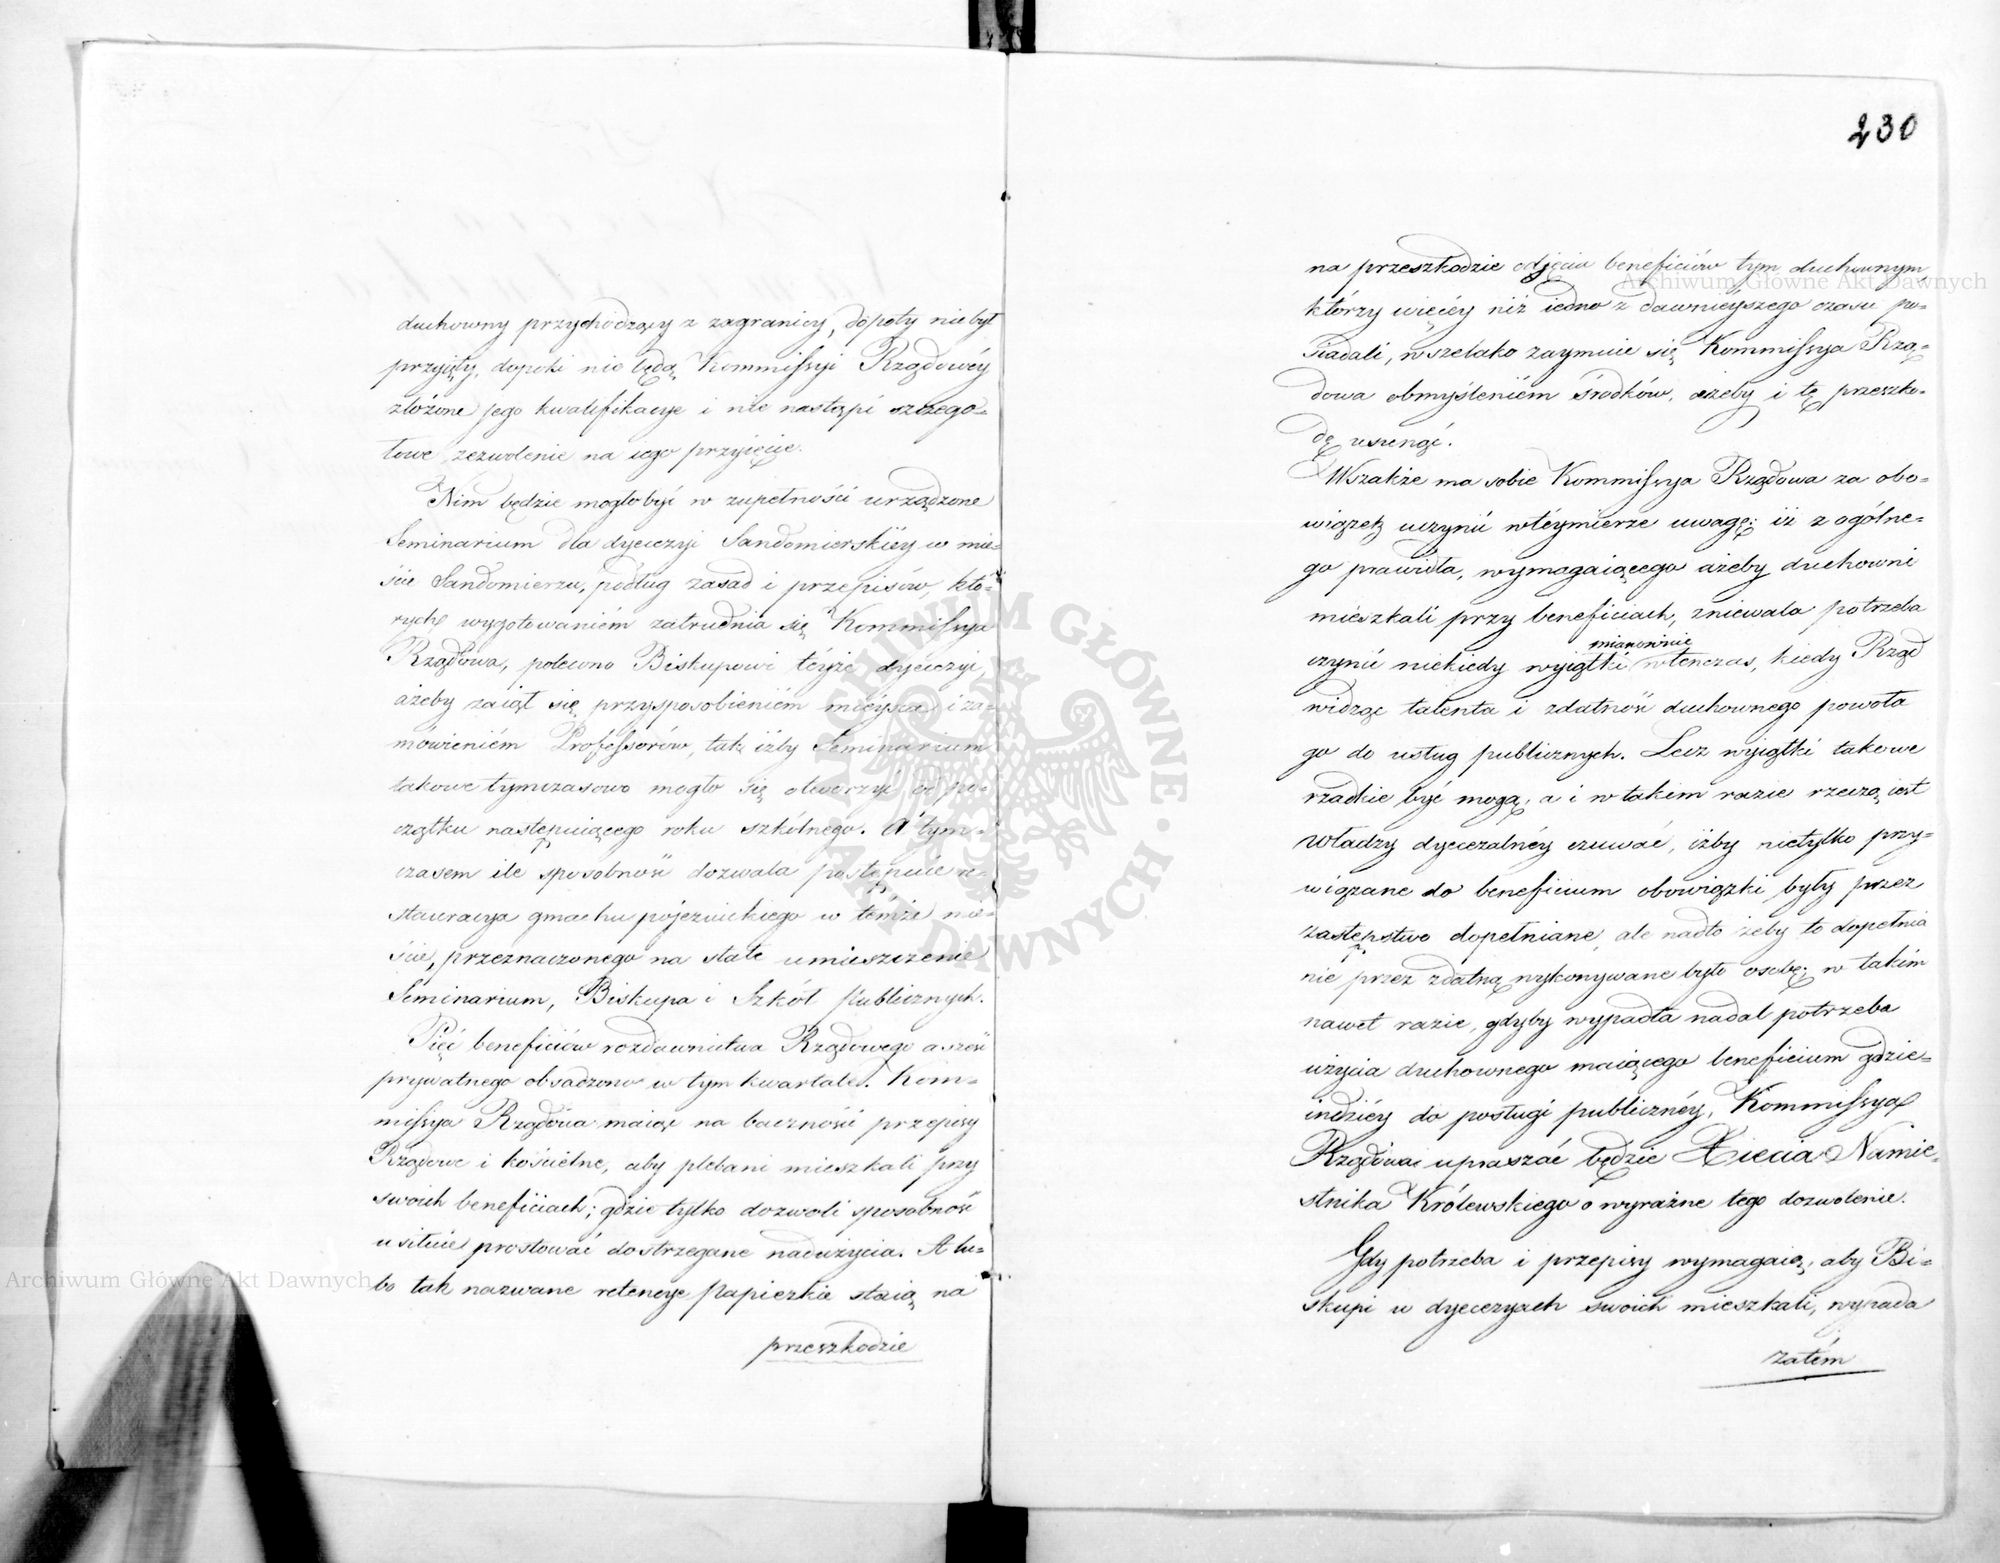 duchowny przychodzący z zagranicy, dopóty nie był
przyjęty, dopóki nie będą Kommissyi Rządowéy
złożone jego kwalifikacye i nie nastąpi szczegó=
łowe zezwolenie na iego przyięcie.
Nim będzie mogło być w zupełności urządzone
Seminarium dla dyecezyi Sandomierskiéy w mie=
ście Sandomierzu, podług zasad i przepisów, któ=
rych wygotowaniém zatrudnia się Kommissya
Rządowa, polecono Biskupowi téyże dyecezyi,
ażeby zaiął się przysposobieniém mieysca i za=
mówieniém Professorów, tak iżby Seminarium
takowe tymczasowo mogło się otworzyć od po=
czątku następuiącego roku szkólnego. A tym=
czasem ile sposobność dozwala postępuie re=
stauracya gmachu pojezuickiego w témże mie=
ście, przeznaczonego na stałe umieszczenie
Seminarium, Biskupa i Szkół publicznych.
Pięć beneficiów rozdawnictwa Rządowego a sześć
prywatnego obsadzono w tym kwartale. Kom=
missya Rządowa maiąc na baczności przepisy
Rządowe i kościelne, aby plebani mieszkali przy
swoich beneficiach; gdzie tylko dozwoli sposobność
usiłuie prostować dostrzegane nadużycia. A lu=
bo tak nazwane retencye Papiezkie stoią na
przeszkodzie
230
na przeszkodzie odjęcia beneficiów tym duchownym,
którzy więcéy niż iedno z dawnieyszego czasu po=
siadali, wszelako zaymuie się Kommissya Rzą=
dowa obmyśleniém środków, ażeby i tę przeszko=
dę usunąć.
Wszakże ma sobie Kommissya Rządowa za obo=
wiązek uczynić w téymierze uwagę; iż z ogólne=
go prawidła, wymagaiącego ażeby duchowni
mieszkali przy beneficiach, zniewala potrzeba
mianowicie
czynić niekiedy wyiątki wtenczas, kiedy Rząd
widząc talenta i zdatność duchownego powoła
go do usług publicznych. Lecz wyiątki takowe
rzadkie być mogą, a i w takim razie rzeczą iest
Władzy dyecezalnéy czuwać, iżby nietylko przy=
wiązane do beneficium obowiązki były przez
zastępstwo dopełniane, ale nadto żeby to dopełnia
nie przez zdatną wykonywane było osobę; w takim
nawet razie, gdyby wypadła nadal potrzeba
użycia duchownego maiącego beneficium gdzie=
indziéy do posługi publicznéy, Kommissya
Rządowa upraszać będzie Xięcia Namie=
stnika Królewskiego o wyraźne tego dozwolenie.
Gdy potrzeba i przepisy wymagaią, aby Bi=
skupi w dyecezyach swoich mieszkali, wypada
zatém
Archiwum Główne Akt Dawnych
Archiwum Główne Akt Dawnych
ARCHIWUM GŁÓWNE · AKT DAWNYCH ·